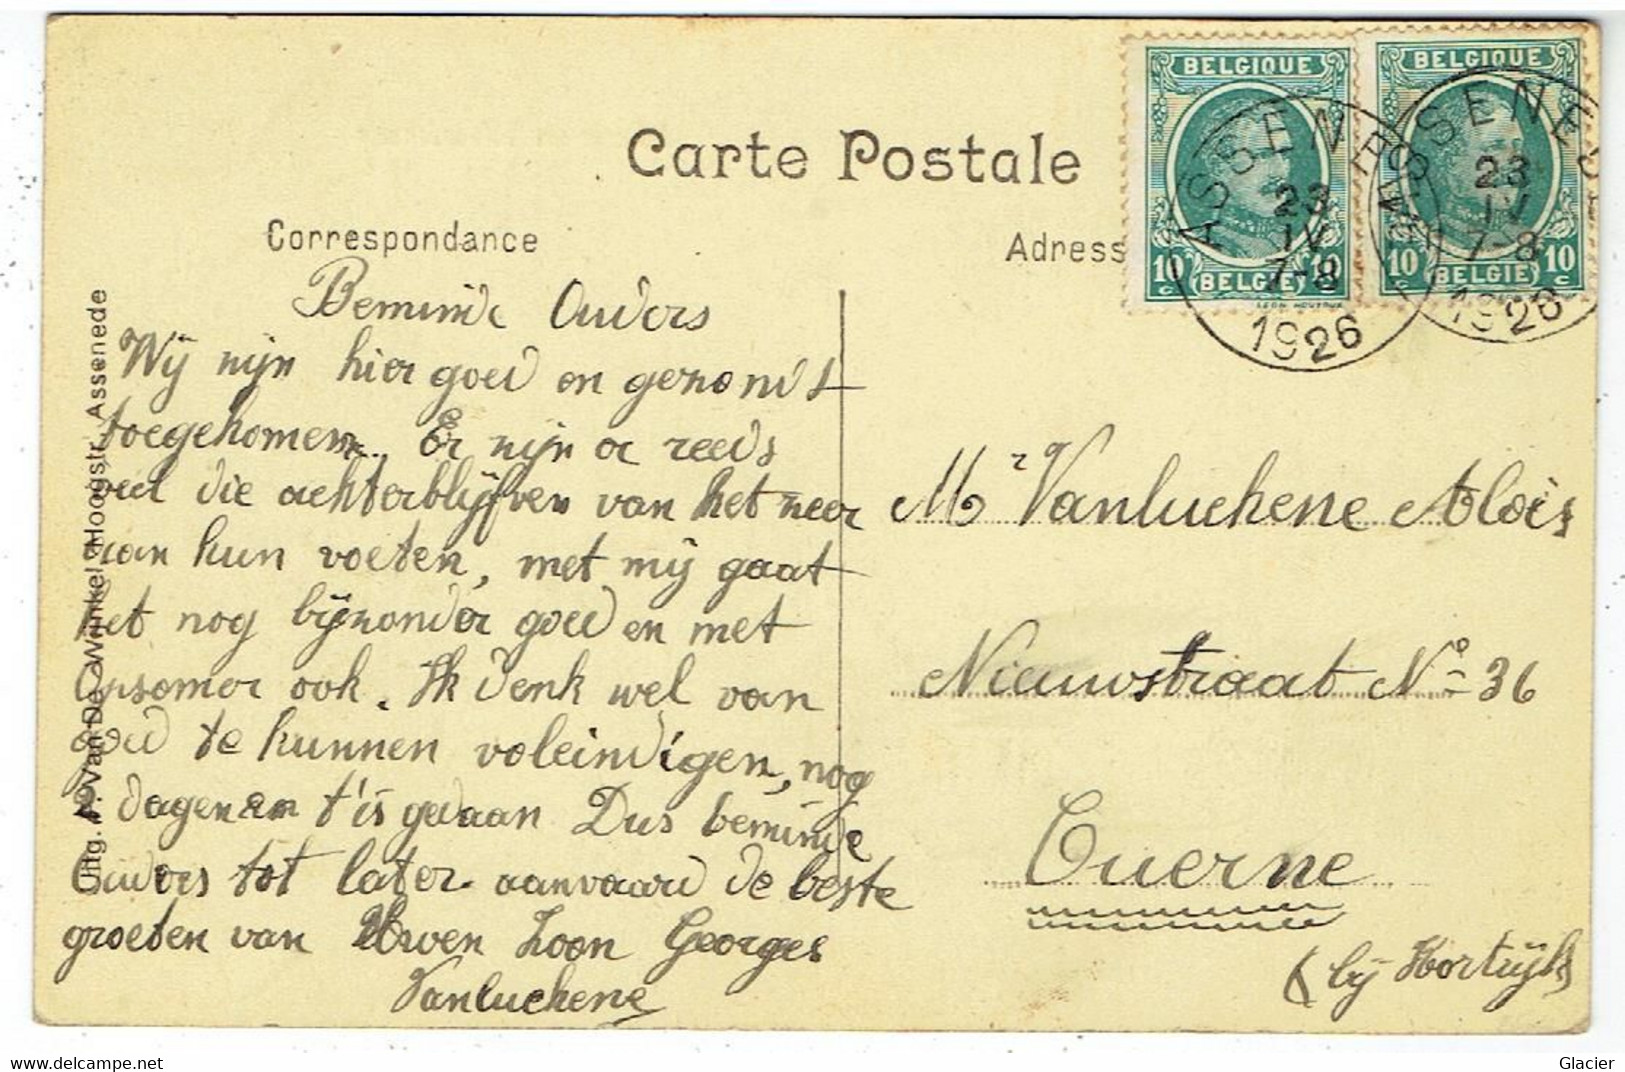 Carte Postale
Correspondance
Adress
BELGIQUE
10c BELGIË 10c
BELGIQUE
10c BELGIË 10c
ASSENEDE
23
IV
7-8
1926
ASSENEDE
23
IV
7-8
1926
Uitg. A. Van De Winkel, Hoogstr. Assenede
Beminde Ouders
Wij zijn hier goed en gezond
toegekomen. Er zijn er reeds
veel die achterblijven van het neer
aan kun voeten, met mij gaat
het nog bijzonder goed en met
Opsomer ook. Ik denk wel van
goed te kunnen voleindigen, nog
dagen en t'is gedaan Dus beminde
Ouders tot later aanvaard de beste
groeten van Uwen Zoon Georges
Vanluchene
Mr Vanluchene Aloïs
Nieuwstraat No 36
Cuerne
(bij Kortrijk)
Glacier